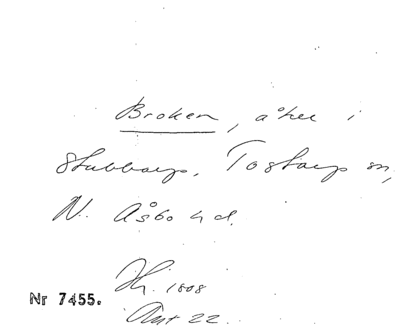 Broken, åker i
Stubbarp, Tostarp sn,
N. Åsbo hd.
1808
Nr 7455.
Akt 22